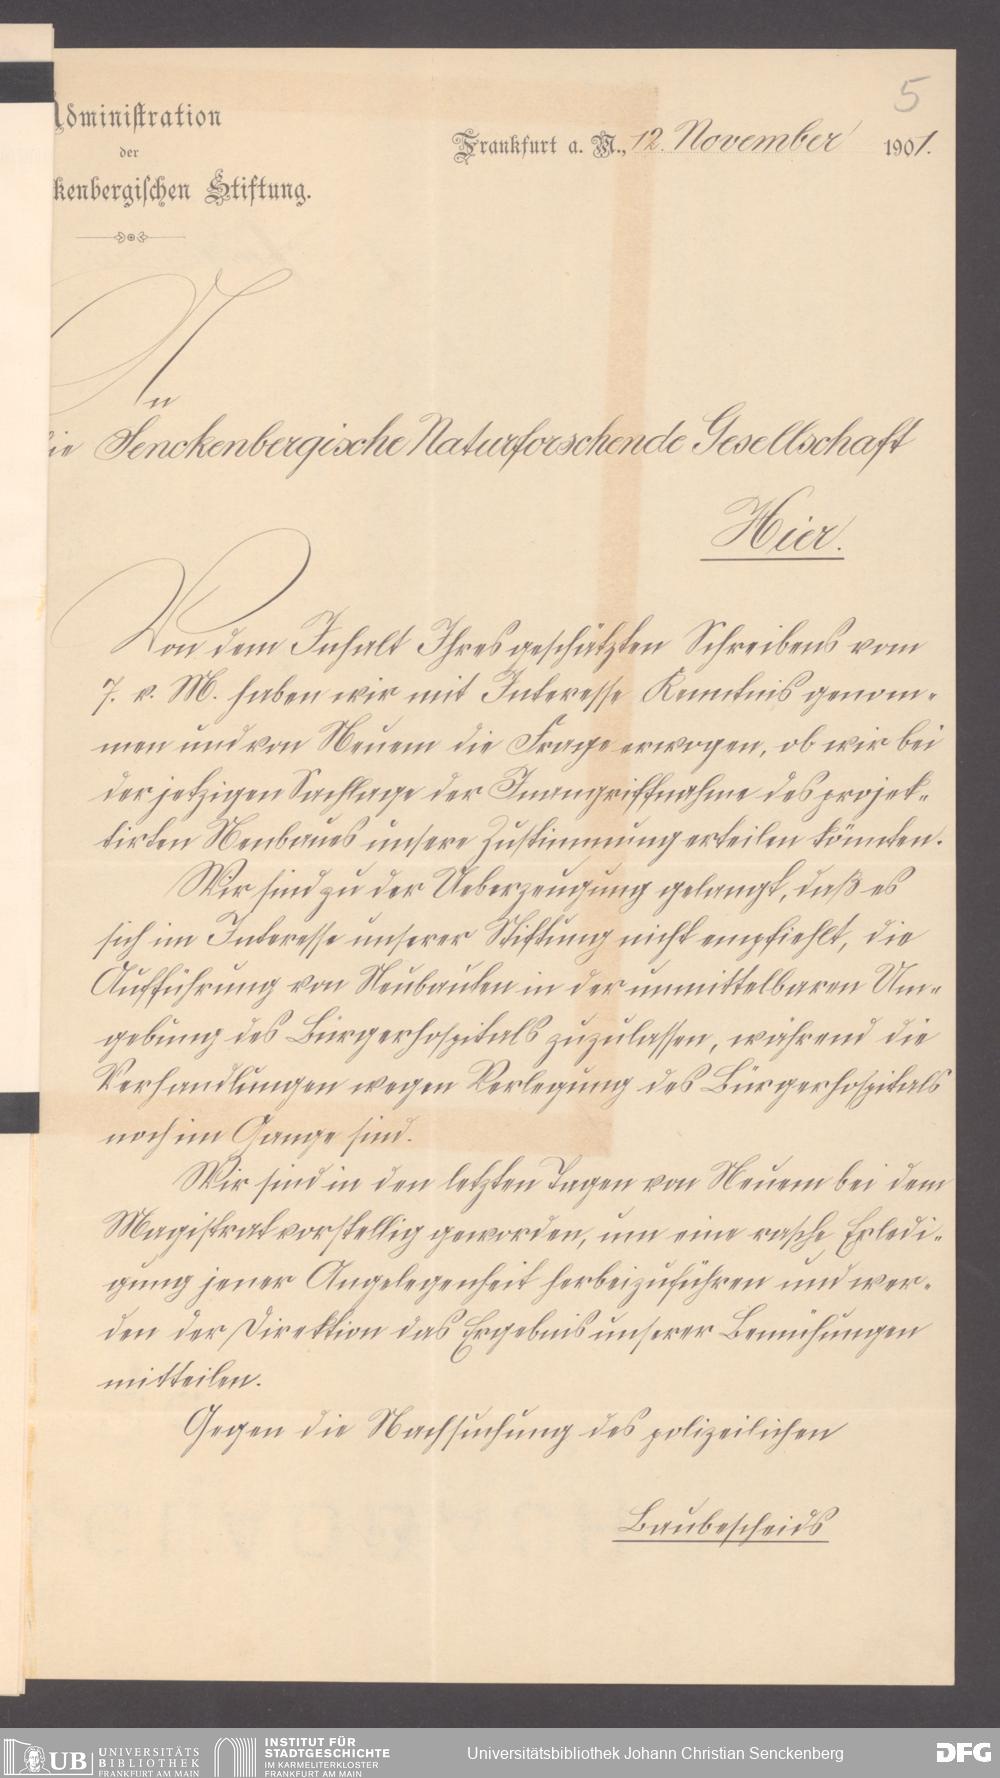 5
Administration
der
kenbergischen Stiftung.
Frankfurt a. M., 12. November 1901.
An
die Senckenbergische Naturforschende Gesellschaft
Hier.
Von dem Inhalt Ihres geschätzten Schreibens vom
7. v. M. haben wir mit Interesse Kenntnis genom-
men und von Neuem die Frage erwogen, ob wir bei
der jetzigen Sachlage der Inangriffnahme des projek-
tirten Neubaues unsere Zustimmung erteilen könnten.
Wir sind zu der Ueberzeugung gelangt, daß es
sich im Interesse unserer Stiftung nicht empfiehlt, die
Aufführung von Neubauten in der unmittelbaren Um-
gebung des Bürgerhospitals zuzulassen, während die
Verhandlungen wegen Verlegung des Bürgerhospitals
noch im Gange sind.
Wir sind in den letzten Tagen von Neuem bei dem
Magistrat vorstellig geworden, um eine rasche Erledi-
gung jener Angelegenheit herbeizuführen und wer-
den der Direktion das Ergebnis unserer Bemühungen
mitteilen.
Gegen die Nachsuchung des polizeilichen
Baubescheids
UB UNIVERSITÄTS
BIBLIOTHEK
FRANKFURT AM MAIN
INSTITUT FÜR
STADTGESCHICHTE
IM KARMELITERKLOSTER
FRANKFURT AM MAIN
Universitätsbibliothek Johann Christian Senckenberg
DFG